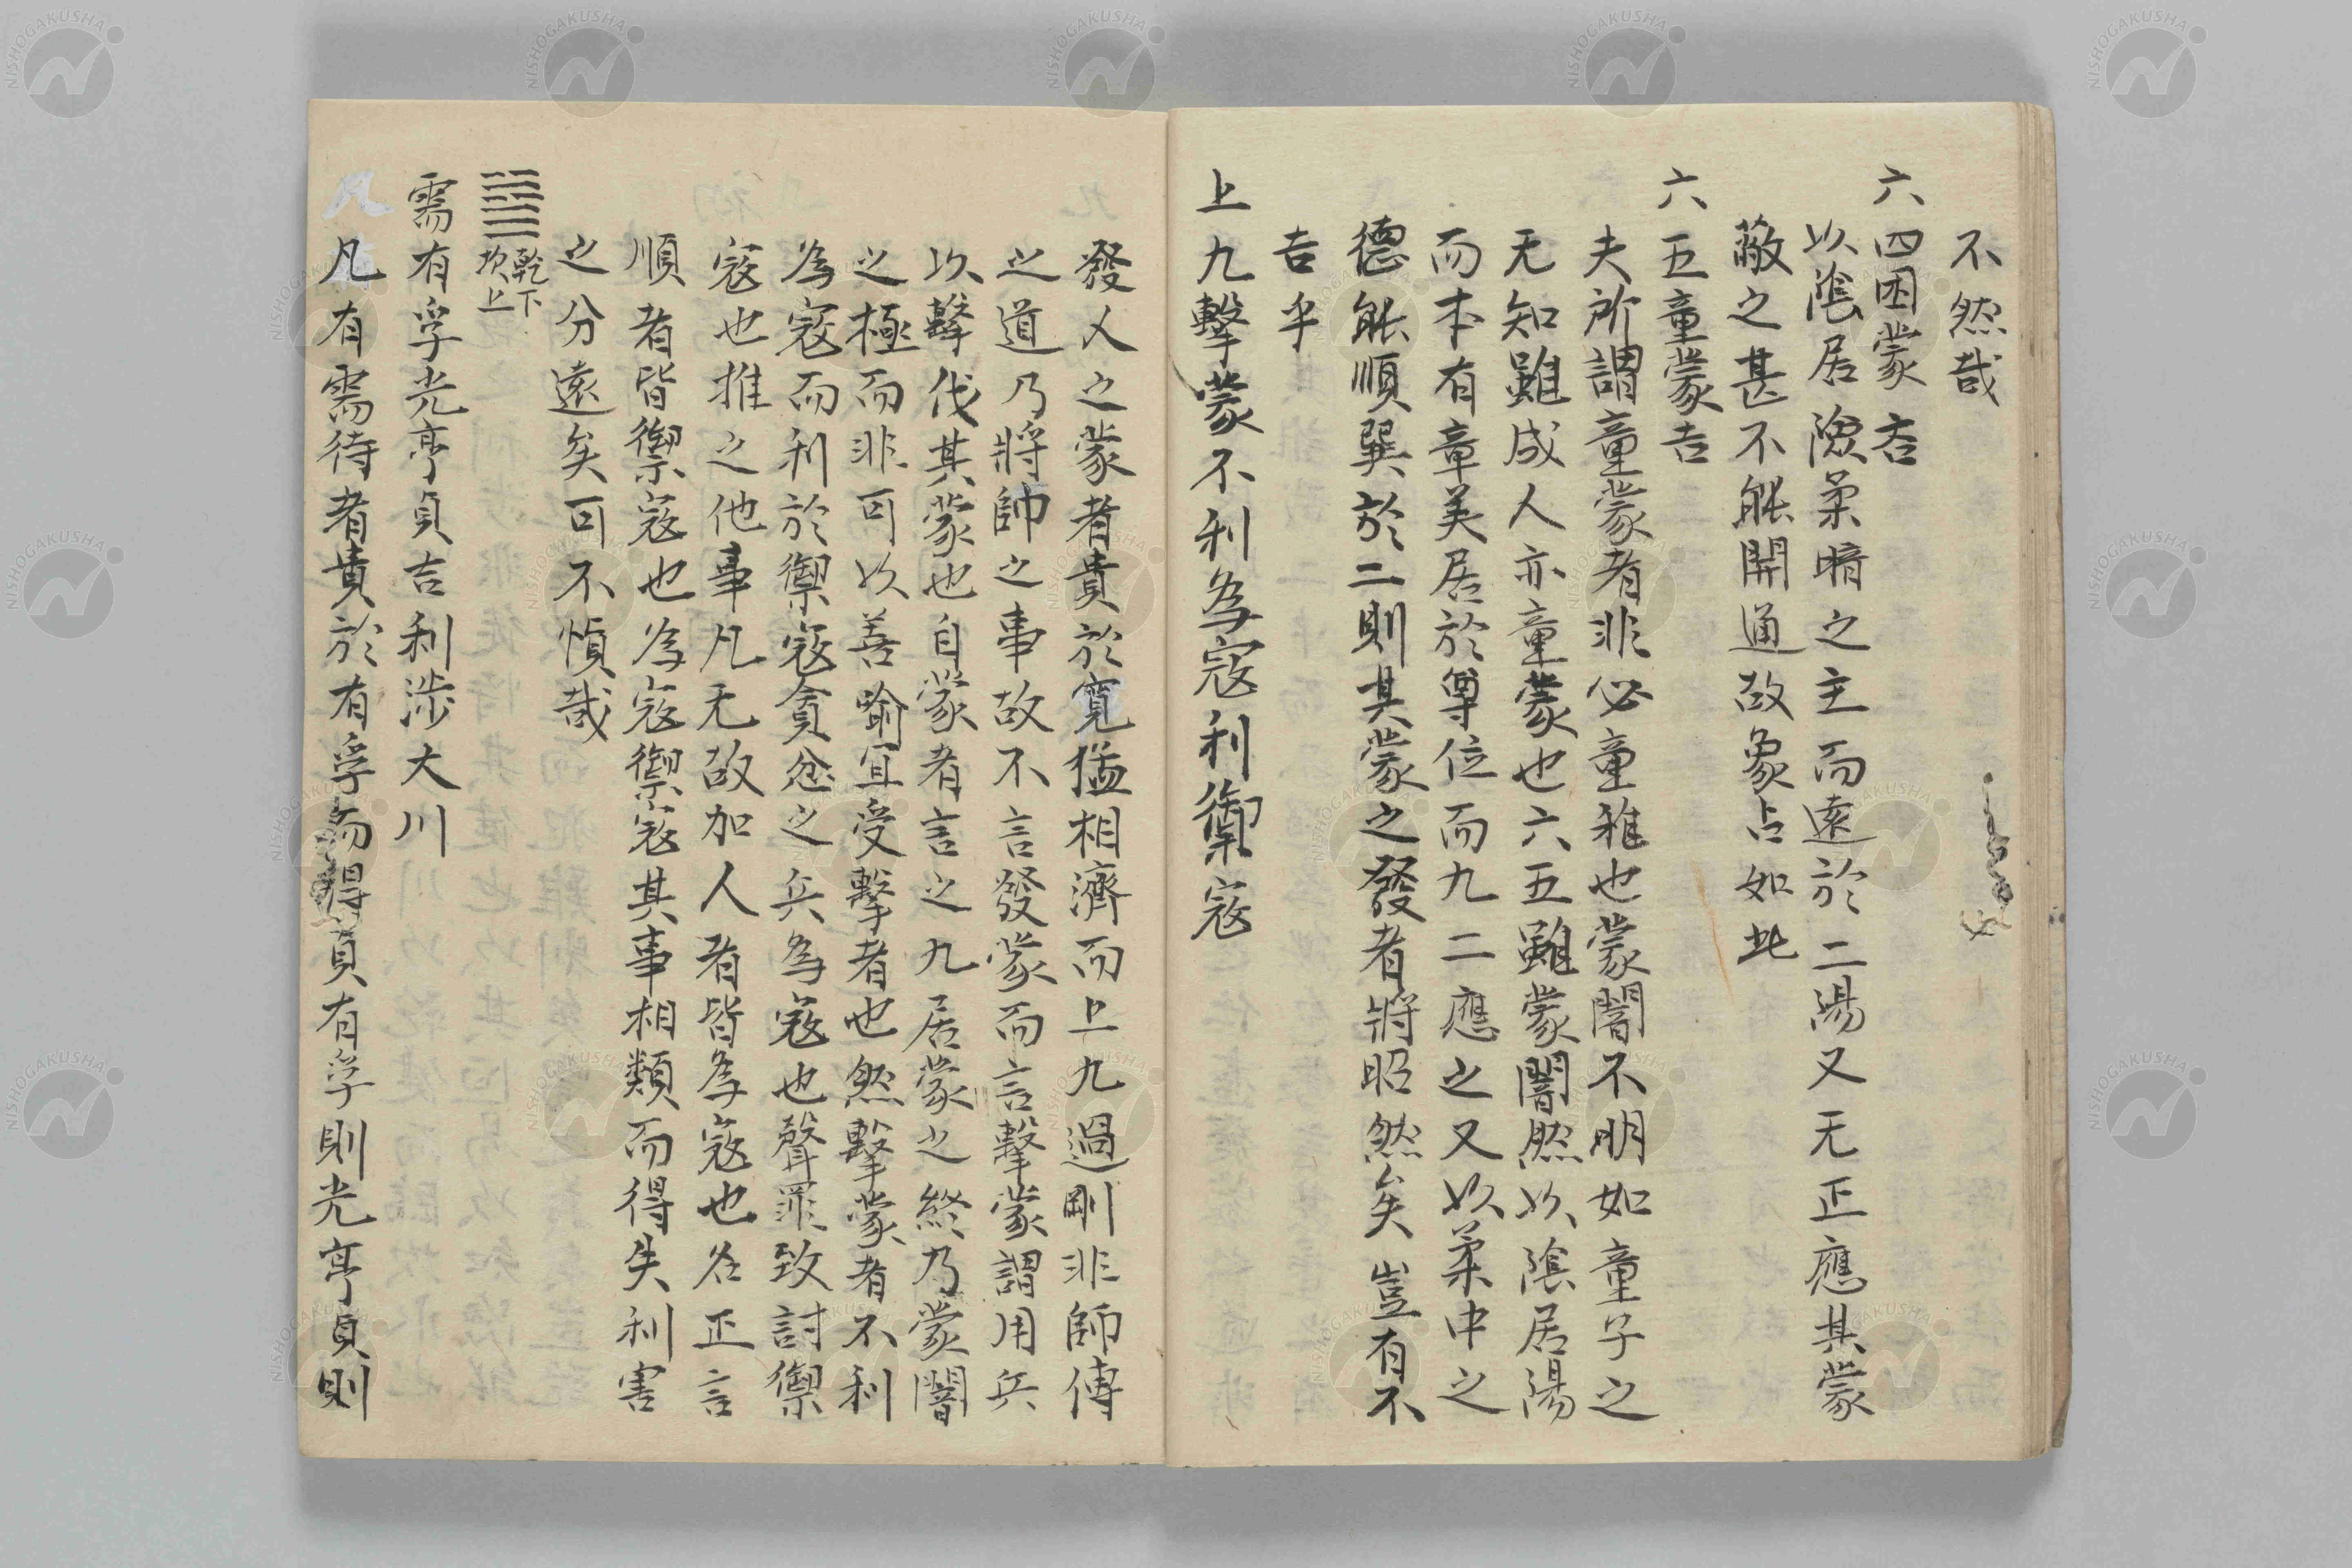 不然哉
六四困蒙吝
以陰居陰柔暗之主而遠於二陽又无正應其蒙
蔽之甚不能開通故象占如此
六五童蒙吉
夫所謂童蒙者非必童稚也蒙闇不明如童子之
无知雖成人亦童蒙也六五雖蒙闇然以陰居陽
而本有章美居於尊位而九二應之又以柔中之
德能順巽於二則其蒙之發者將昭然矣豈有不
吉乎
上九擊蒙不利為寇利禦寇
發人之蒙者貴於寬猛相濟而上九過剛非師傅
之道乃將帥之事故不言發蒙而言擊蒙謂用兵
以擊伐其蒙也自蒙者言之九居蒙之終乃蒙闇
之極而非可以善喻宜受擊者也然擊蒙者不利
為寇而利於禦寇貪忿之兵為寇也聲罪致討禦
寇也推之他事凡无故加人者皆為寇也名正言
順者皆禦寇也為寇禦寇其事相類而得失利害
之分遠矣可不慎哉
乾下
坎上
需有孚光亨貞吉利涉大川
凡有需待者貴於有孚而得貞有孚則光亨貞則
NISHOGAKUSHA